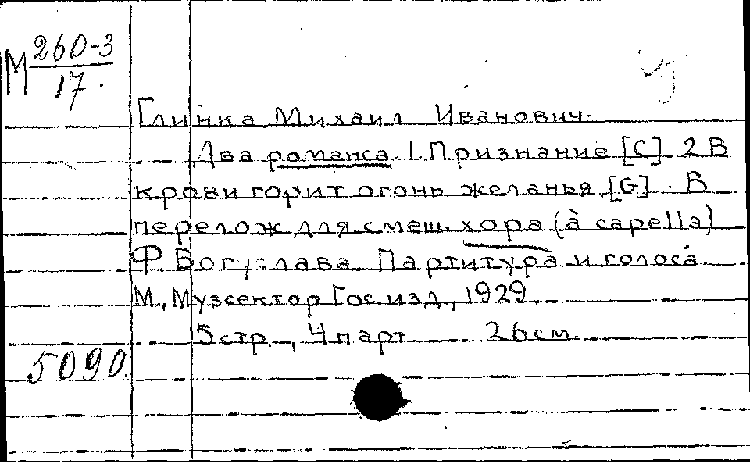 М 260-3
17.
Глинка Михаил Иванович.
Два романса. 1. Признание [C] 2 В
крови горит огонь желанья [G]. В
перелож. для смеш. хора (à capella)
Ф. Богуслава. Партитура и голоса
М., Музсектор Госизд., 1929
5 стр., 4 парт 26 см
5090.